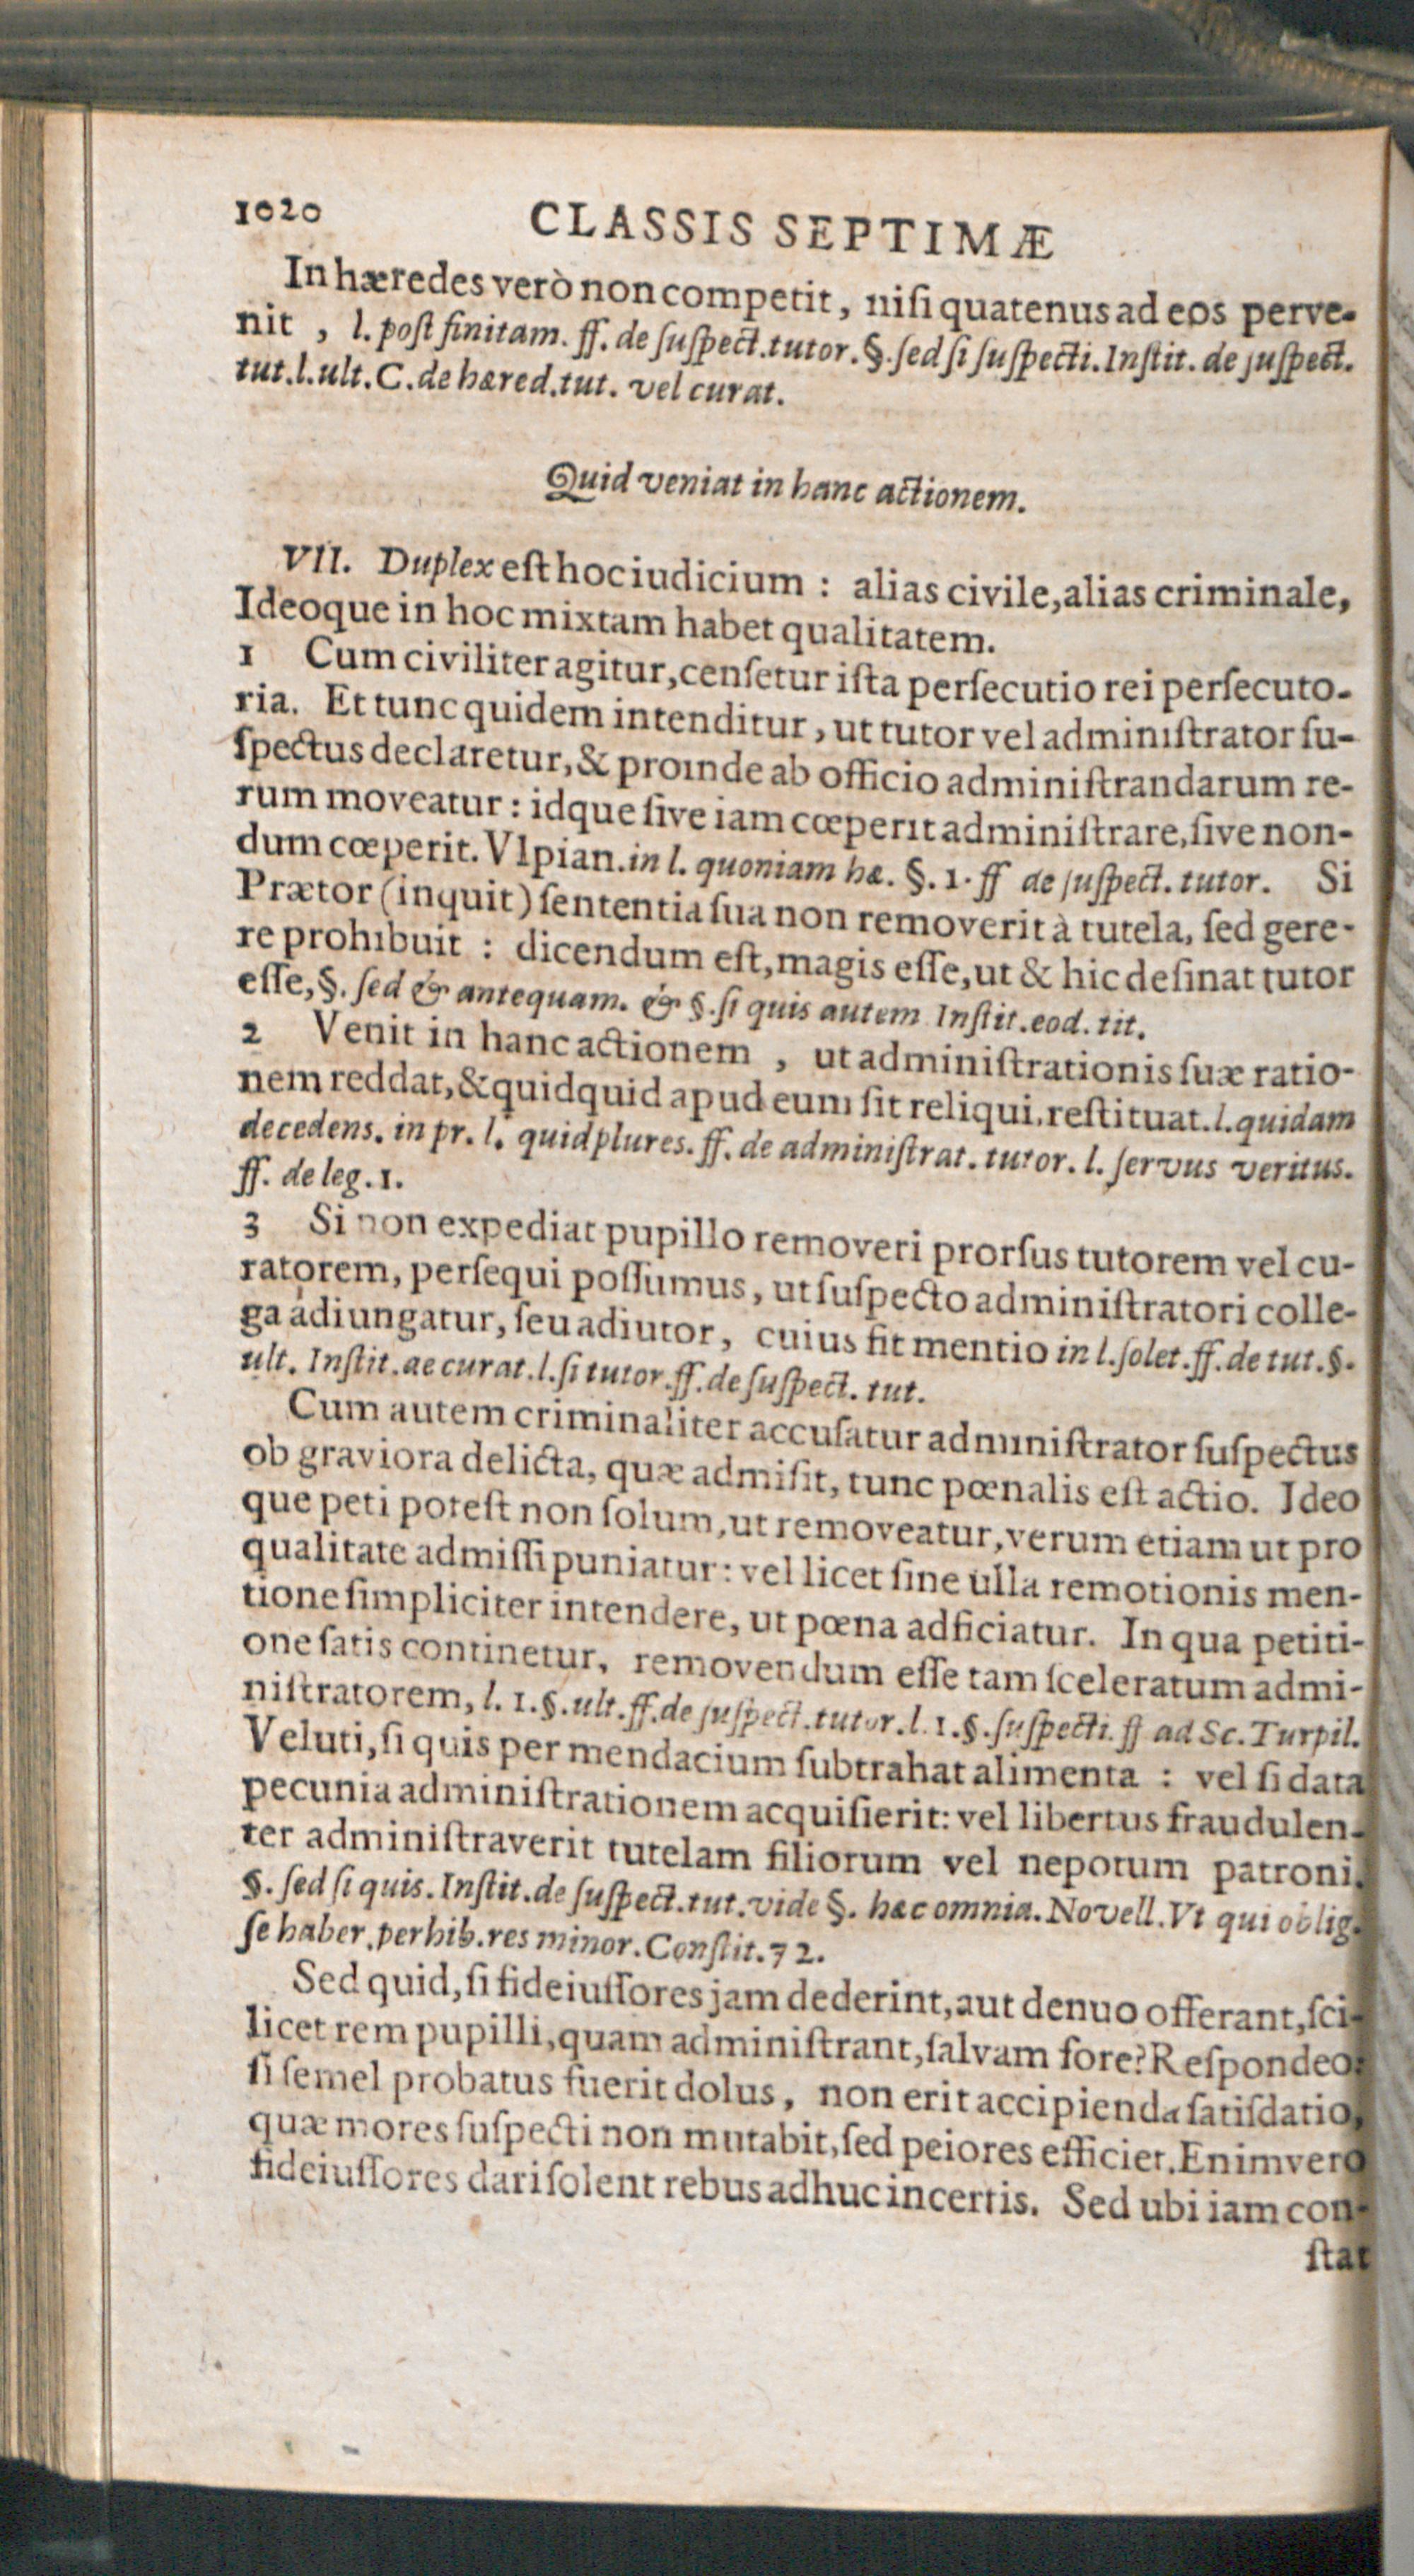 1020 CLASSIS SEPTIMÆ
In hæredes verò non competit, nisi quatenus ad eos perve-
nit , l. post finitam. ff. de suspect. tutor. §. sed si suspecti. Instit. de suspect.
tut. l. ult. C. de hæred. tut. vel curat.
Quid veniat in hanc actionem.
VII. Duplex est hoc iudicium : alias civile, alias criminale,
Ideoque in hoc mixtam habet qualitatem.
1 Cum civiliter agitur, censetur ista persecutio rei persecuto-
ria. Et tunc quidem intenditur, ut tutor vel administrator su-
spectus declaretur, & proinde ab officio administrandarum re-
rum moveatur : idque sive iam cœperit administrare, sive non-
dum cœperit. Vlpian. in l. quoniam hæ. §. 1. ff de suspect. tutor. Si
Prætor (inquit) sententia sua non removerit à tutela, sed gere-
re prohibuit : dicendum est, magis esse, ut & hic desinat tutor
esse, §. sed & antequam. & §. si quis autem Instit. eod. tit.
2 Venit in hanc actionem , ut administrationis suæ ratio-
nem reddat, & quidquid apud eum sit reliqui, restituat. l. quidam
decedens. in pr. l. quid plures. ff. de administrat. tutor. l. servus veritus.
ff. de leg. 1.
3 Si non expediat pupillo removeri prorsus tutorem vel cu-
ratorem, persequi possumus, ut suspecto administratori colle-
ga adiungatur, seu adiutor, cuius fit mentio in l. solet. ff. de tut. §.
ult. Instit. de curat. l. si tutor. ff. de suspect. tut.
Cum autem criminaliter accusatur administrator suspectus
ob graviora delicta, quæ admisit, tunc pœnalis est actio. Ideo
que peti potest non solum, ut removeatur, verum etiam ut pro
qualitate admissi puniatur : vel licet sine ulla remotionis men-
tione simpliciter intendere, ut pœna adficiatur. In qua petiti-
one satis continetur, removendum esse tam sceleratum admi-
nistratorem, l. 1. §. ult. ff. de suspect. tutor. l. 1. §. suspecti. ff ad Sc. Turpil.
Veluti, si quis per mendacium subtrahat alimenta : vel si data
pecunia administrationem acquisierit: vel libertus fraudulen-
ter administraverit tutelam filiorum vel nepotum patroni.
§. sed si quis. Instit. de suspect. tut. vide §. hæc omnia. Novell. Vt qui oblig.
se haber. perhib. res minor. Constit. 72.
Sed quid, si fideiussores jam dederint, aut denuo offerant, sci-
licet rem pupilli, quam administrant, salvam fore? Respondeo:
si semel probatus fuerit dolus, non erit accipienda satisdatio,
quæ mores suspecti non mutabit, sed peiores efficiet. Enimvero
fideiussores dari solent rebus adhuc incertis. Sed ubi iam con-
stat